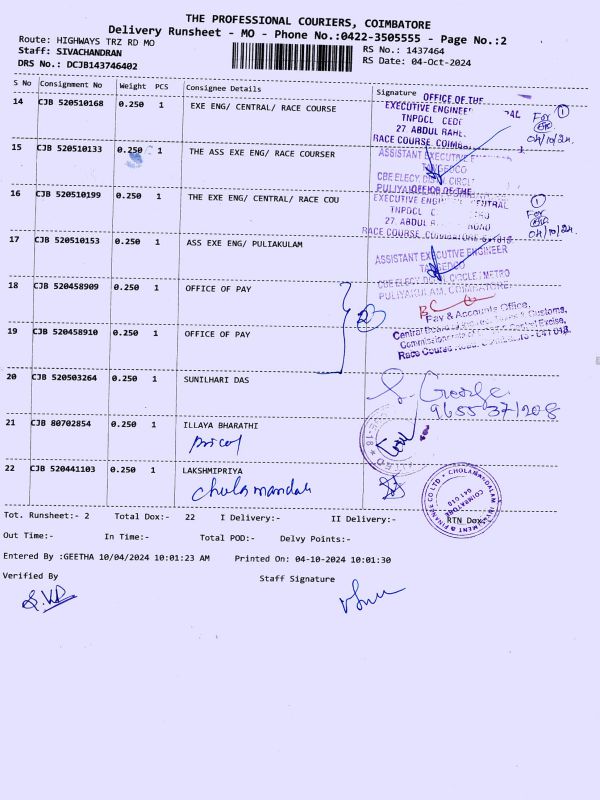 THE PROFESSIONAL COURIERS, COIMBATORE
Delivery Runsheet - MO - Phone No.:0422-3505555 - Page No.:2
Route: HIGHWAYS TRZ RD MO
RS No.: 1437464
Staff: SIVACHANDRAN
RS Date: 04-Oct-2024
DRS No.: DCJB143746402
S No Consignment No Weight PCS Consignee Details Signature
14 CJB 520510168 0.250 1 EXE ENG/ CENTRAL/ RACE COURSE
OFFICE OF THE
EXECUTIVE ENGINEER
TNPDCL
27 ABDUL
RACE COURSE, COIMB
For
04/10/24
1
15 CJB 520510133 0.250 1 THE ASS EXE ENG/ RACE COURSER
ASSISTANT EXECUTIVE ENGINEER
CIRCLE
16 CJB 520510199 0.250 1 THE EXE ENG/ CENTRAL/ RACE COU
OFFICE OF THE
EXECUTIVE ENGINEER CENTRAL
TNPDCL
27, ABDUL ROAD
RACE COURSE, COIMBATORE 641018
1
For
04/10/24
17 CJB 520510153 0.250 1 ASS EXE ENG/ PULIAKULAM
ASSISTANT EXECUTIVE ENGINEER
TANGEDCO
CIRCLE / METRO
PULIYAKULAM, COIMBATORE
18 CJB 520458909 0.250 1 OFFICE OF PAY
2
Pay & Accounts Office,
Customs,
Central Excise,
Race Course Road, 641 018.
19 CJB 520458910 0.250 1 OFFICE OF PAY
20 CJB 520503264 0.250 1 SUNILHARI DAS
S. George
9655371208
21 CJB 80702854 0.250 1 ILLAYA BHARATHI
22 CJB 520441103 0.250 1 LAKSHMIPRIYA
Cholamandalam
CHOLAMANDALAM INVESTMENT & FINANCE CO LTD
COIMBATORE
641 018
Tot. Runsheet:- 2 Total Dox:- 22 I Delivery:- II Delivery:- RTN Dox:-
Out Time:- In Time:- Total POD:- Delvy Points:-
Entered By :GEETHA 10/04/2024 10:01:23 AM Printed On: 04-10-2024 10:01:30
Verified By Staff Signature